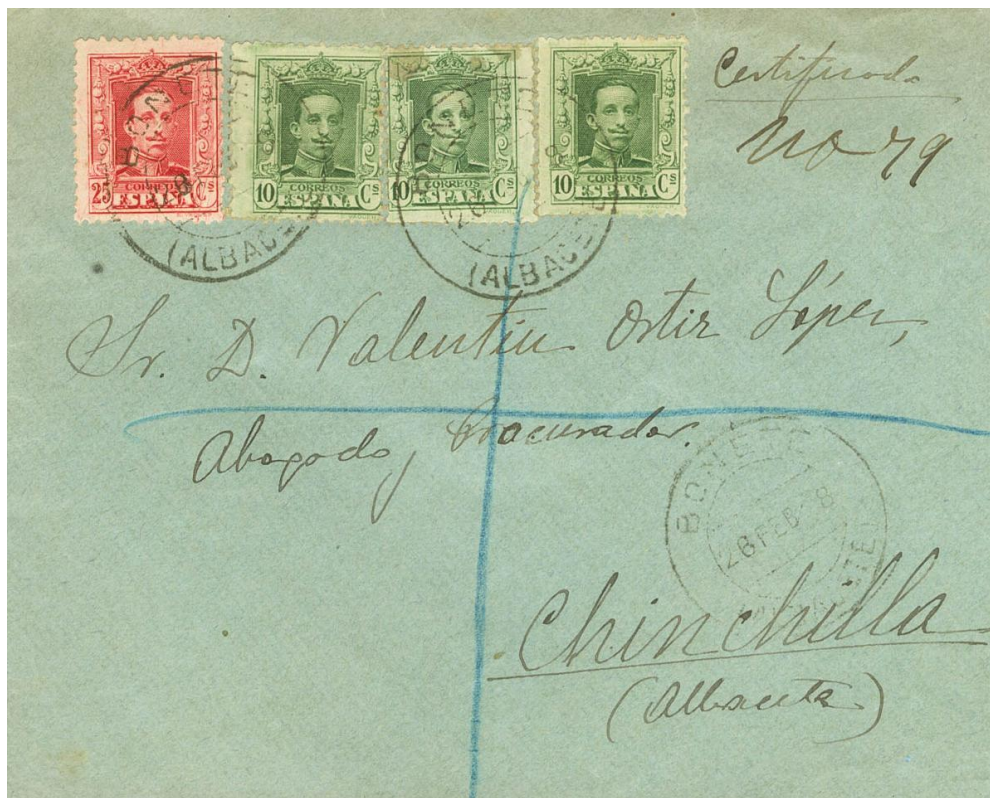 Certificado
No 79
25 CORREOS Cs
ESPAÑA
10 CORREOS Cs
ESPAÑA
10 CORREOS Cs
ESPAÑA
10 CORREOS Cs
ESPAÑA
(ALBACETE
(ALBACETE
Sr. D. Valentin Ortiz López,
Abogado, Procurador.
BONETE
26 FEB 28
Chinchilla
(Albacete)